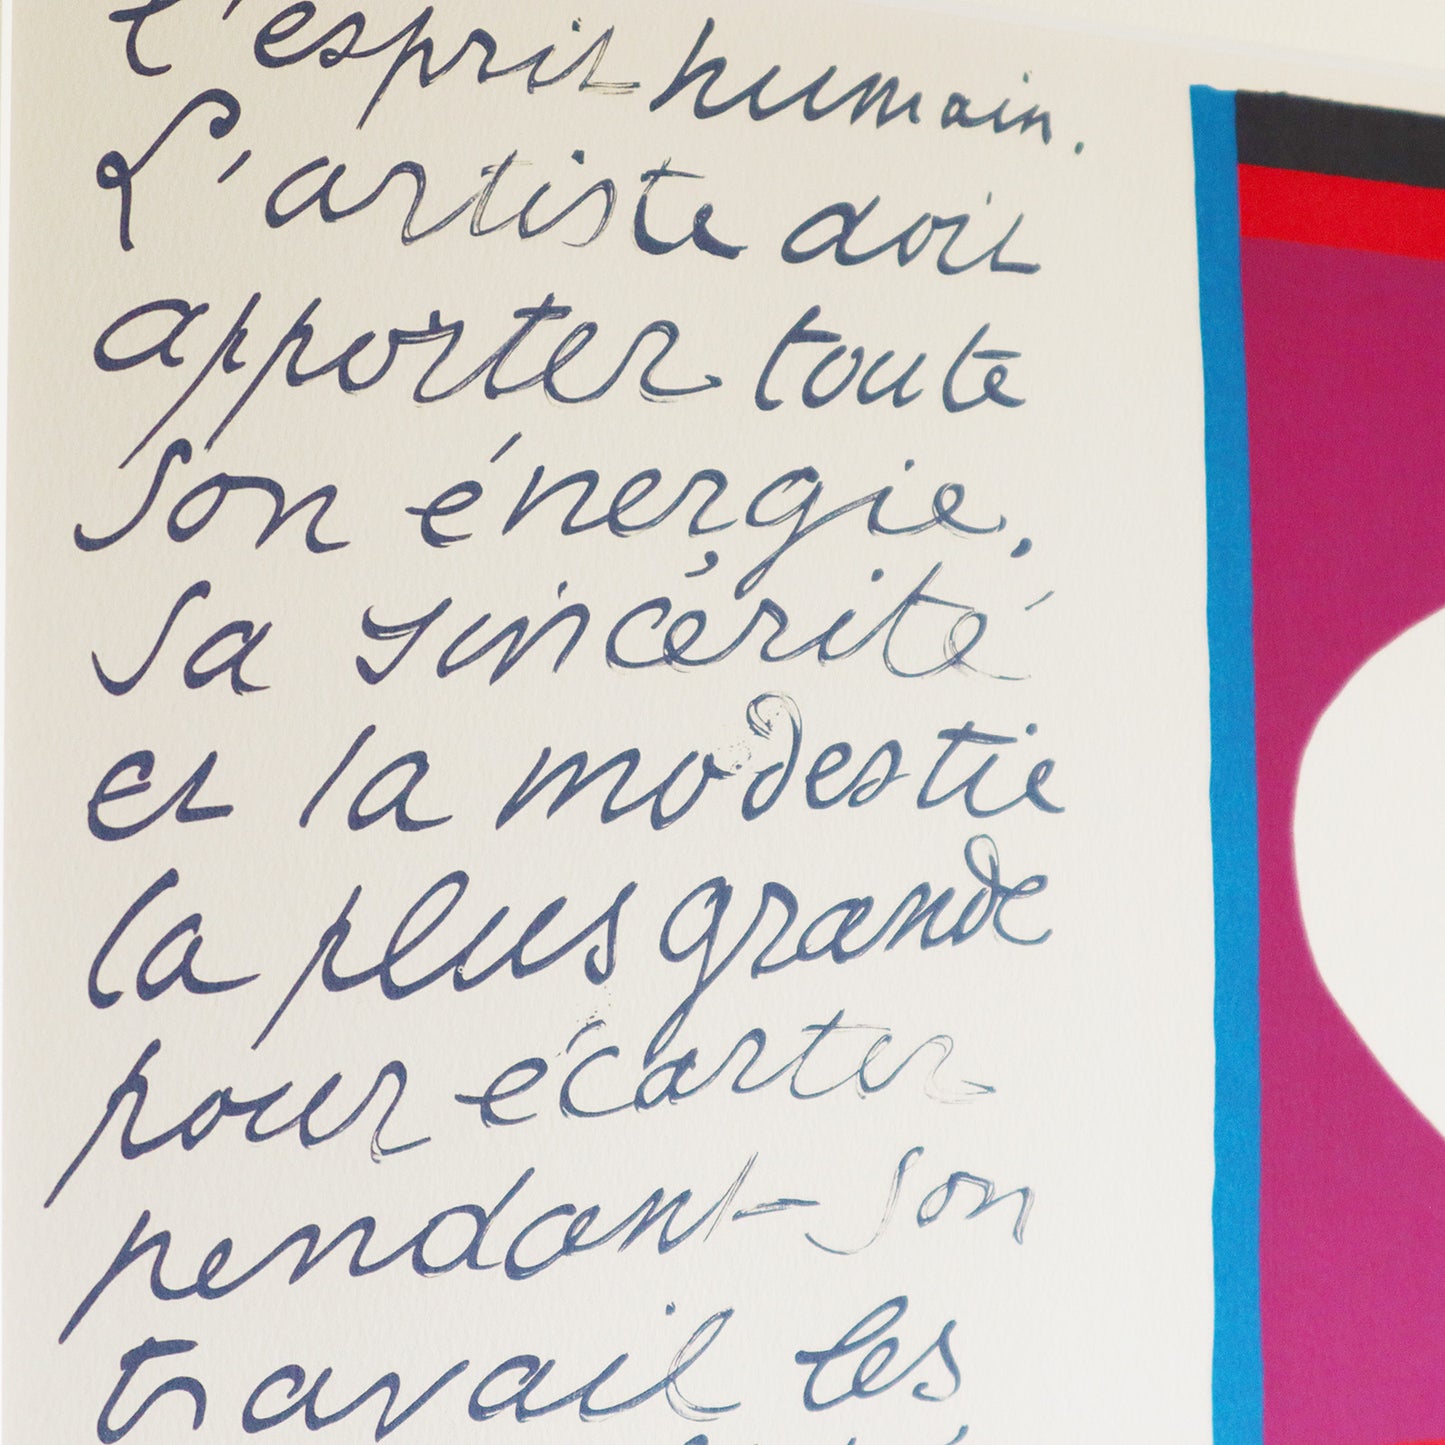 l'esprit humain.
L'artiste doit
apporter toute
son énergie,
sa sincérité
et la modestie
la plus grande
pour écarter
pendant son
travail les